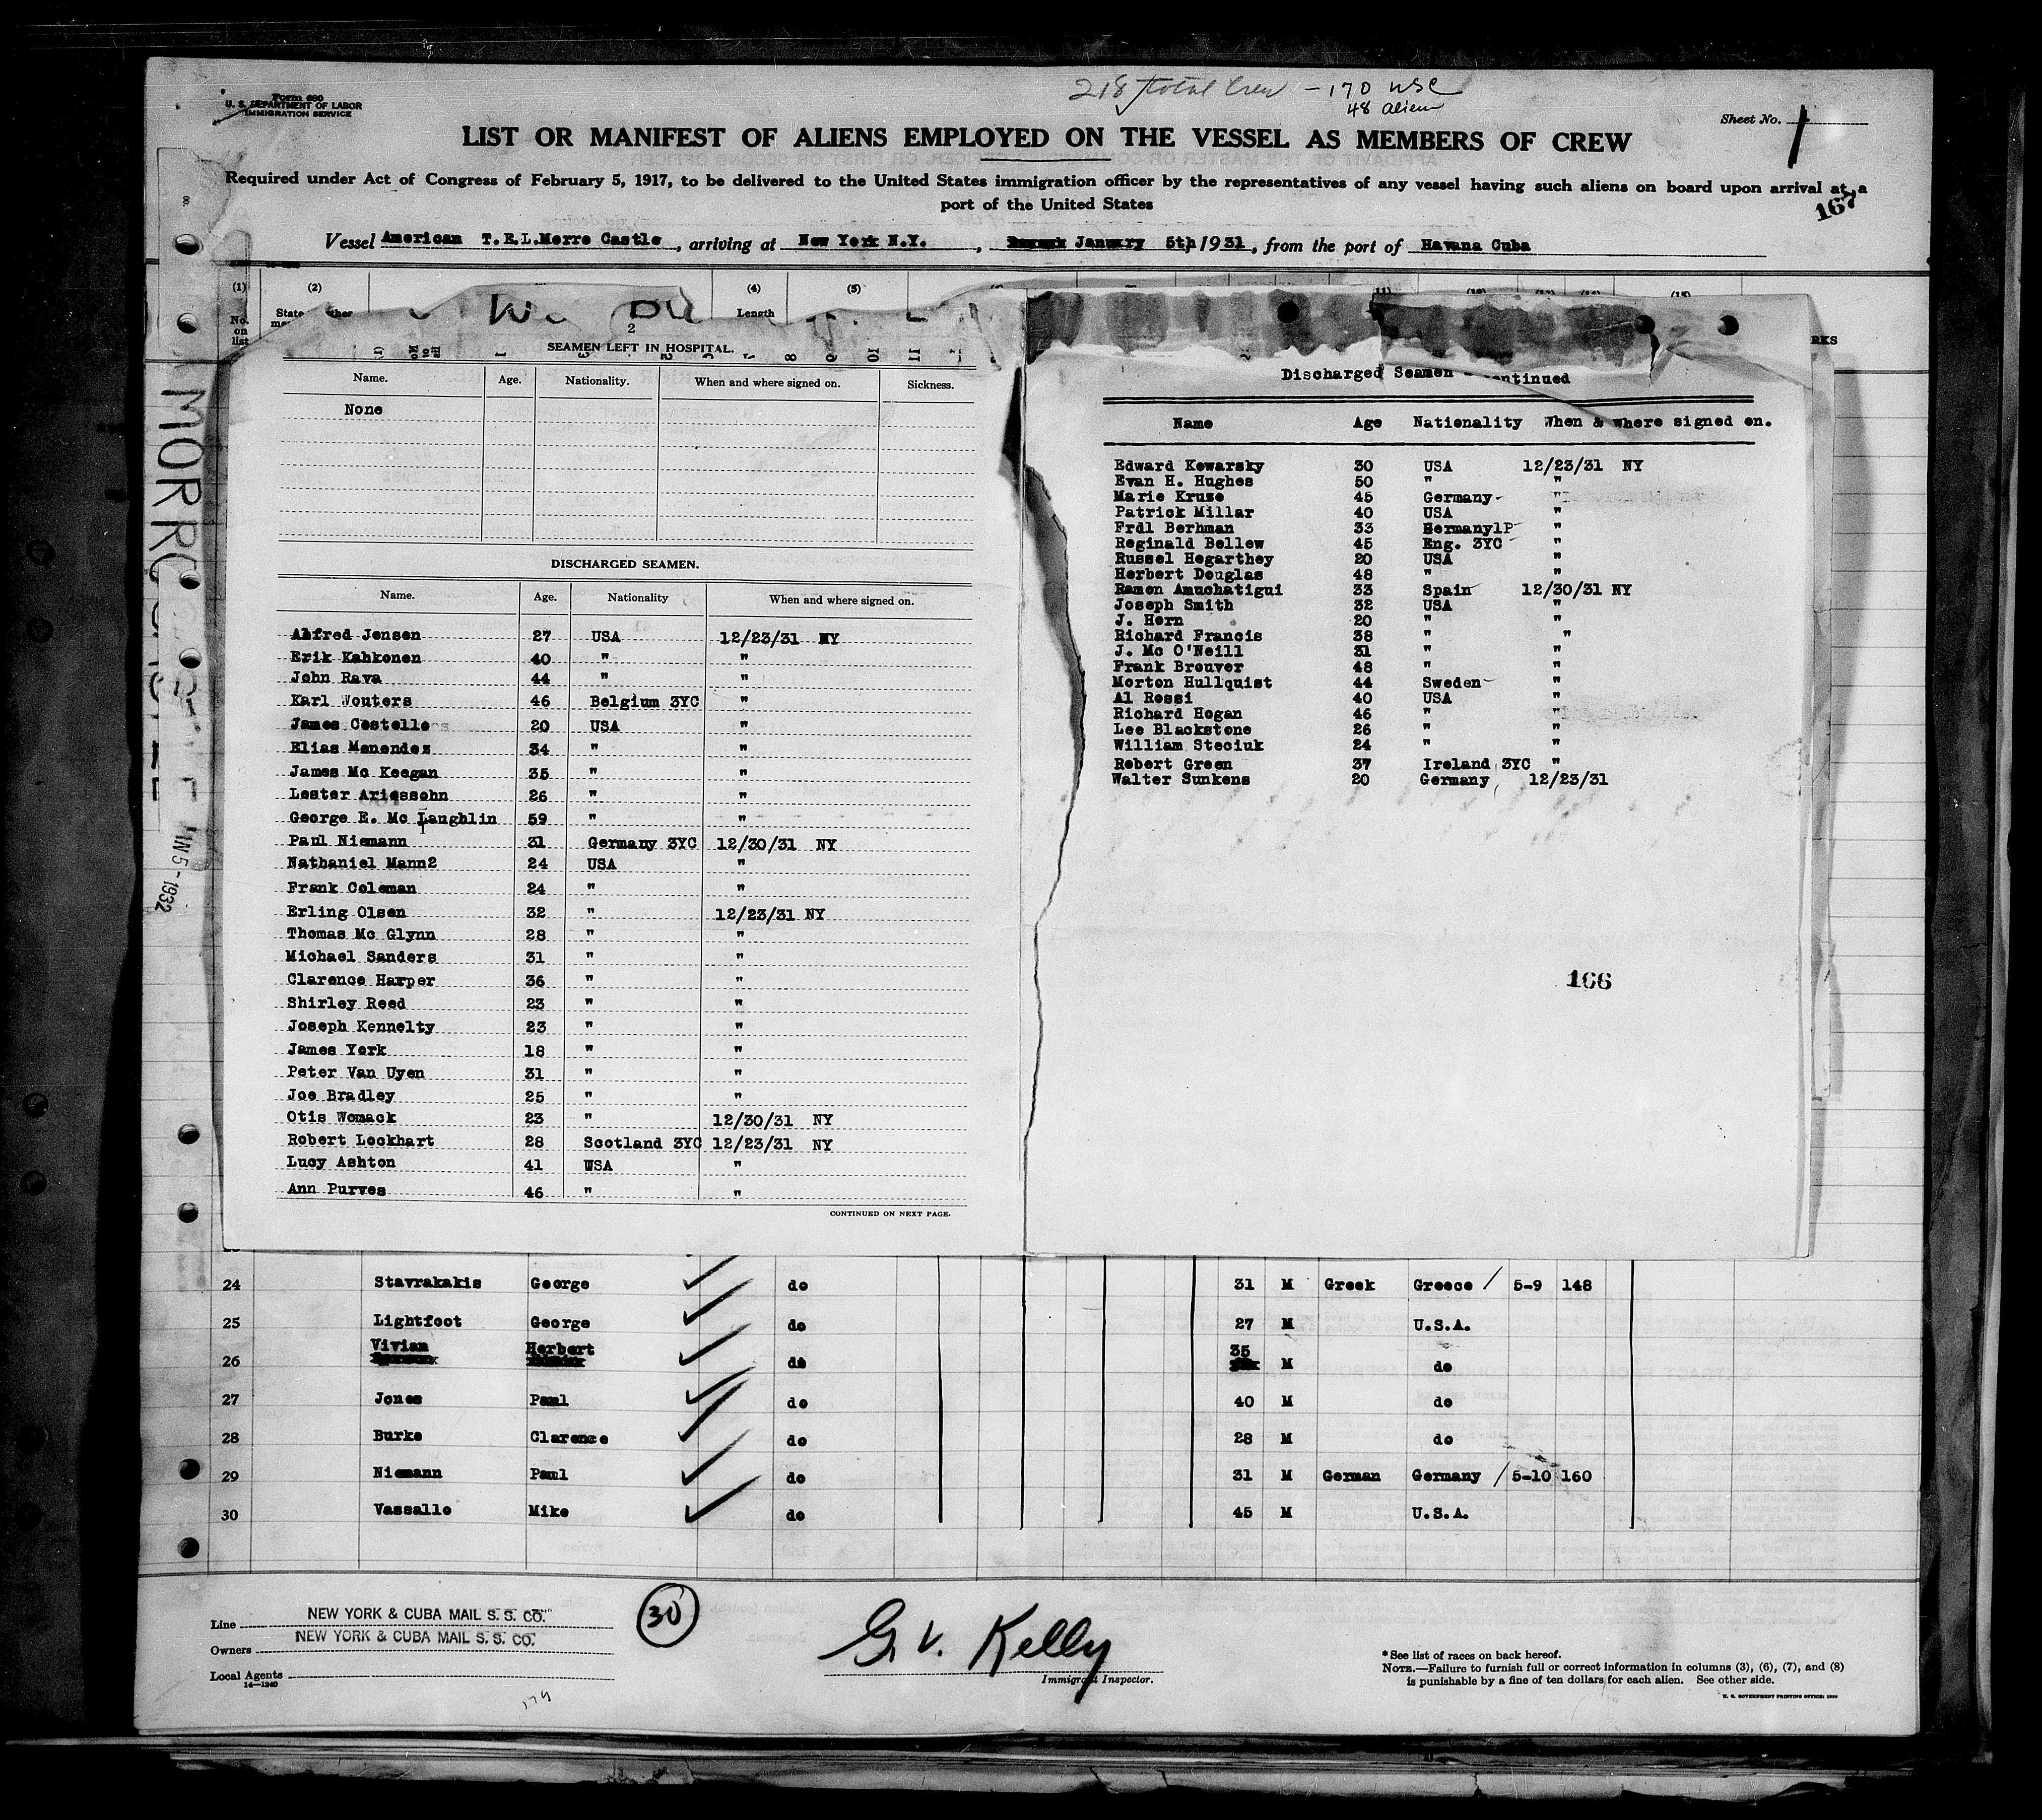 218 total Crew - 170 usc
48 alien
Form 680
U. S. DEPARTMENT OF LABOR
IMMIGRATION SERVICE
Sheet No. 1
LIST OR MANIFEST OF ALIENS EMPLOYED ON THE VESSEL AS MEMBERS OF CREW
Required under Act of Congress of February 5, 1917, to be delivered to the United States immigration officer by the representatives of any vessel having such aliens on board upon arrival at a
port of the United States
167
Vessel American T.E.L.Morro Castle, arriving at New York N.Y., January 5th, 1931, from the port of Havana Cuba
(1) (2) (4) (5)
No. on list State Length
MORRO CASTLE
JAN 5-1932
2
SEAMEN LEFT IN HOSPITAL.
Name. Age. Nationality. When and where signed on. Sickness.
None
DISCHARGED SEAMEN.
Name. Age. Nationality When and where signed on.
Alfred Jensen 27 USA 12/23/31 NY
Erik Kahkonen 40 " "
John Rava 44 " "
Karl Wouters 46 Belgium 3YC "
James Costello 20 USA "
Elias Menendez 34 " "
James Mc Keegan 35 " "
Lester Ariessohn 26 " "
George E. Mc Laughlin 59 " "
Paul Niemann 31 Germany 3YC 12/30/31 NY
Nathaniel Mann2 24 USA "
Frank Coleman 24 " "
Erling Olsen 32 " 12/23/31 NY
Thomas Mc Glynn 28 " "
Michael Sanders 31 " "
Clarence Harper 36 " "
Shirley Reed 23 " "
Joseph Kennelty 23 " "
James York 18 " "
Peter Van Uyen 31 " "
Joe Bradley 25 " "
Otis Womack 23 " 12/30/31 NY
Robert Lockhart 28 Scotland 3YC 12/23/31 NY
Lucy Ashton 41 USA "
Ann Purves 46 " "
CONTINUED ON NEXT PAGE.
Discharged Seamen - continued
Name Age Nationality When & where signed on.
Edward Kowarsky 30 USA 12/23/31 NY
Evan H. Hughes 50 " "
Marie Kruse 45 Germany "
Patrick Millar 40 USA "
Frdl Berhman 33 Germany1P "
Reginald Bellew 45 Eng. 3YC "
Russel Hegarthey 20 USA "
Herbert Douglas 48 " "
Ramon Amuchatigui 33 Spain 12/30/31 NY
Joseph Smith 32 USA "
J. Horn 20 " "
Richard Francis 38 " "
J. Mc O'Neill 31 " "
Frank Brouver 48 " "
Morton Hullquist 44 Sweden "
Al Rossi 40 USA "
Richard Hogan 46 " "
Lee Blackstone 26 " "
William Steciuk 24 " "
Robert Green 37 Ireland 3YC "
Walter Sunkens 20 Germany 12/23/31
166
24 Stavrakakis George do 31 M Greek Greece / 5-9 148
25 Lightfoot George do 27 M U.S.A.
26 Vivian Herbert do 35 M do
27 Jones Paul do 40 M do
28 Burke Clarence do 28 M do
29 Niemann Paul do 31 M German Germany / 5-10 160
30 Vassallo Mike do 45 M U.S.A.
Line NEW YORK & CUBA MAIL S. S. CO.
Owners NEW YORK & CUBA MAIL S. S. CO.
Local Agents
14-1240
30
G. V. Kelly
Immigrant Inspector.
* See list of races on back hereof.
NOTE.—Failure to furnish full or correct information in columns (3), (6), (7), and (8)
is punishable by a fine of ten dollars for each alien. See other side.
U. S. GOVERNMENT PRINTING OFFICE: 1930